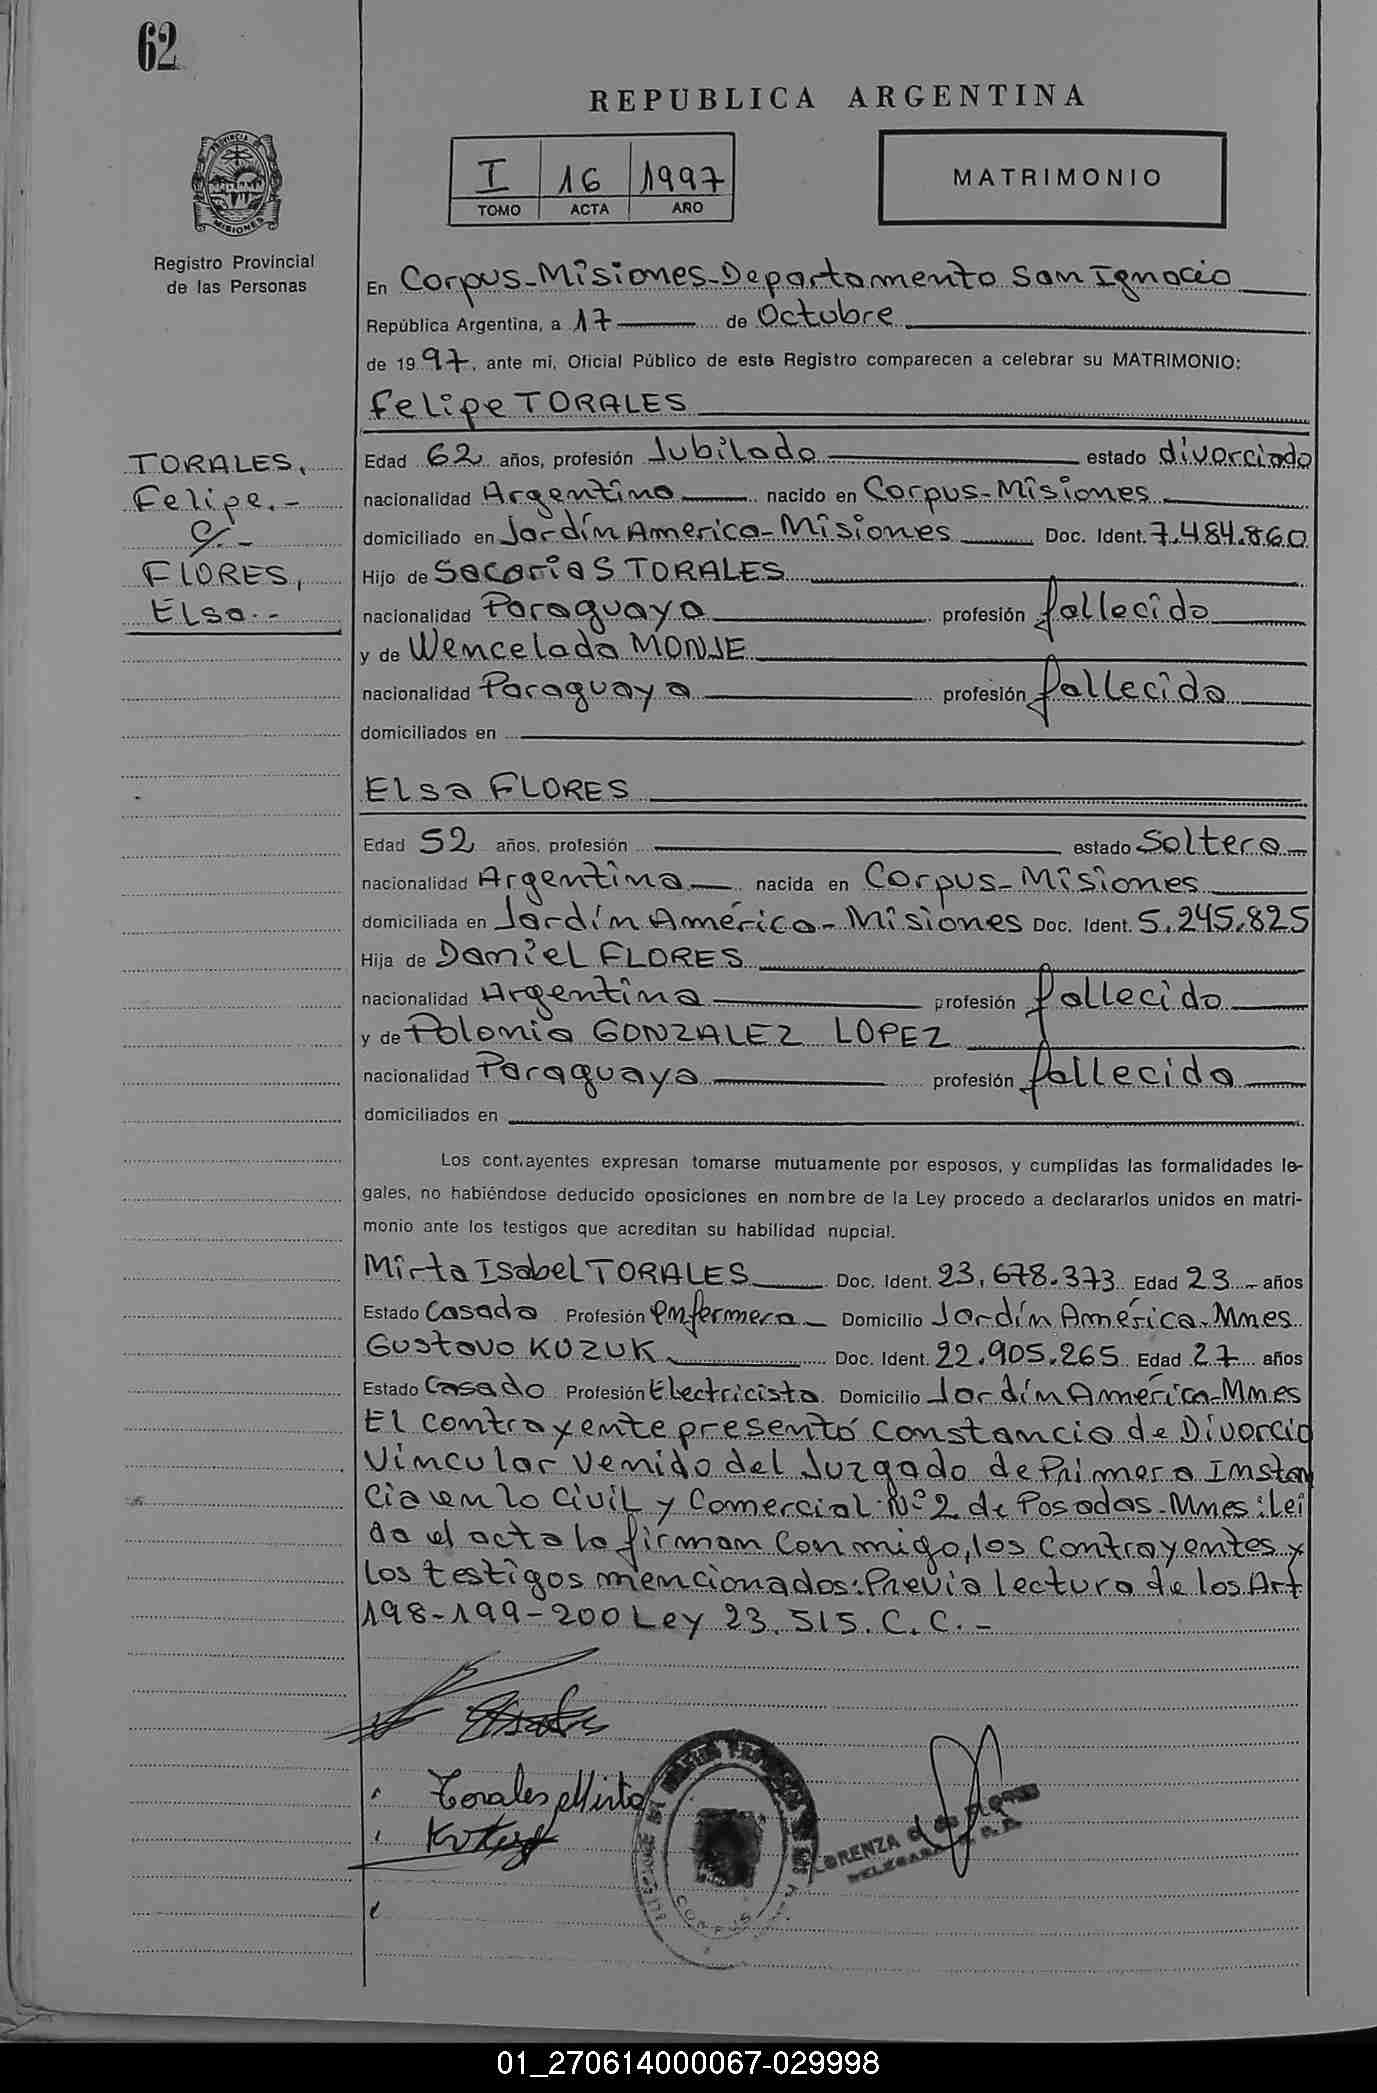 62
REPUBLICA ARGENTINA
I 16 1997
TOMO ACTA AÑO
MATRIMONIO
PROVINCIA DE MISIONES
Registro Provincial
de las Personas
En Corpus-Misiones-Departamento San Ignacio
República Argentina, a 17 de Octubre
de 1997, ante mi, Oficial Público de este Registro comparecen a celebrar su MATRIMONIO:
Felipe TORALES
TORALES,
Felipe.-
c/.-
FLORES,
Elsa.-
Edad 62 años, profesión Jubilado estado divorciado
nacionalidad Argentina nacido en Corpus-Misiones
domiciliado en Jardín America-Misiones Doc. Ident. 7.484.860
Hijo de Sacarias TORALES
nacionalidad Paraguaya profesión fallecido
y de Wencelada MONJE
nacionalidad Paraguaya profesión fallecida
domiciliados en
Elsa FLORES
Edad 52 años, profesión estado Soltera
nacionalidad Argentina nacida en Corpus-Misiones
domiciliada en Jardín América-Misiones Doc. Ident. 5.245.825
Hija de Daniel FLORES
nacionalidad Argentina profesión fallecido
y de Polonia GONZALEZ LOPEZ
nacionalidad Paraguaya profesión fallecida
domiciliados en
Los contrayentes expresan tomarse mutuamente por esposos, y cumplidas las formalidades le-
gales, no habiéndose deducido oposiciones en nombre de la Ley procedo a declararlos unidos en matri-
monio ante los testigos que acreditan su habilidad nupcial.
Mirta Isabel TORALES Doc. Ident. 23.678.373 Edad 23 años
Estado Casada Profesión enfermera Domicilio Jardín América-Mnes
Gustavo KUZUK Doc. Ident. 22.905.265 Edad 27 años
Estado Casado Profesión Electricista Domicilio Jardín América-Mnes
El contrayente presentó Constancia de Divorcio
Vincular venido del Juzgado de Primera Instan
cia en lo Civil y Comercial Nº 2 de Posadas-Mnes: Leí
da el acta la firman conmigo, los contrayentes y
los testigos mencionados: Previa lectura de los Art
198-199-200 Ley 23.515. C.C.-
Torales Mirta
CORPUS
LORENZA de FLORES
01_270614000067-029998